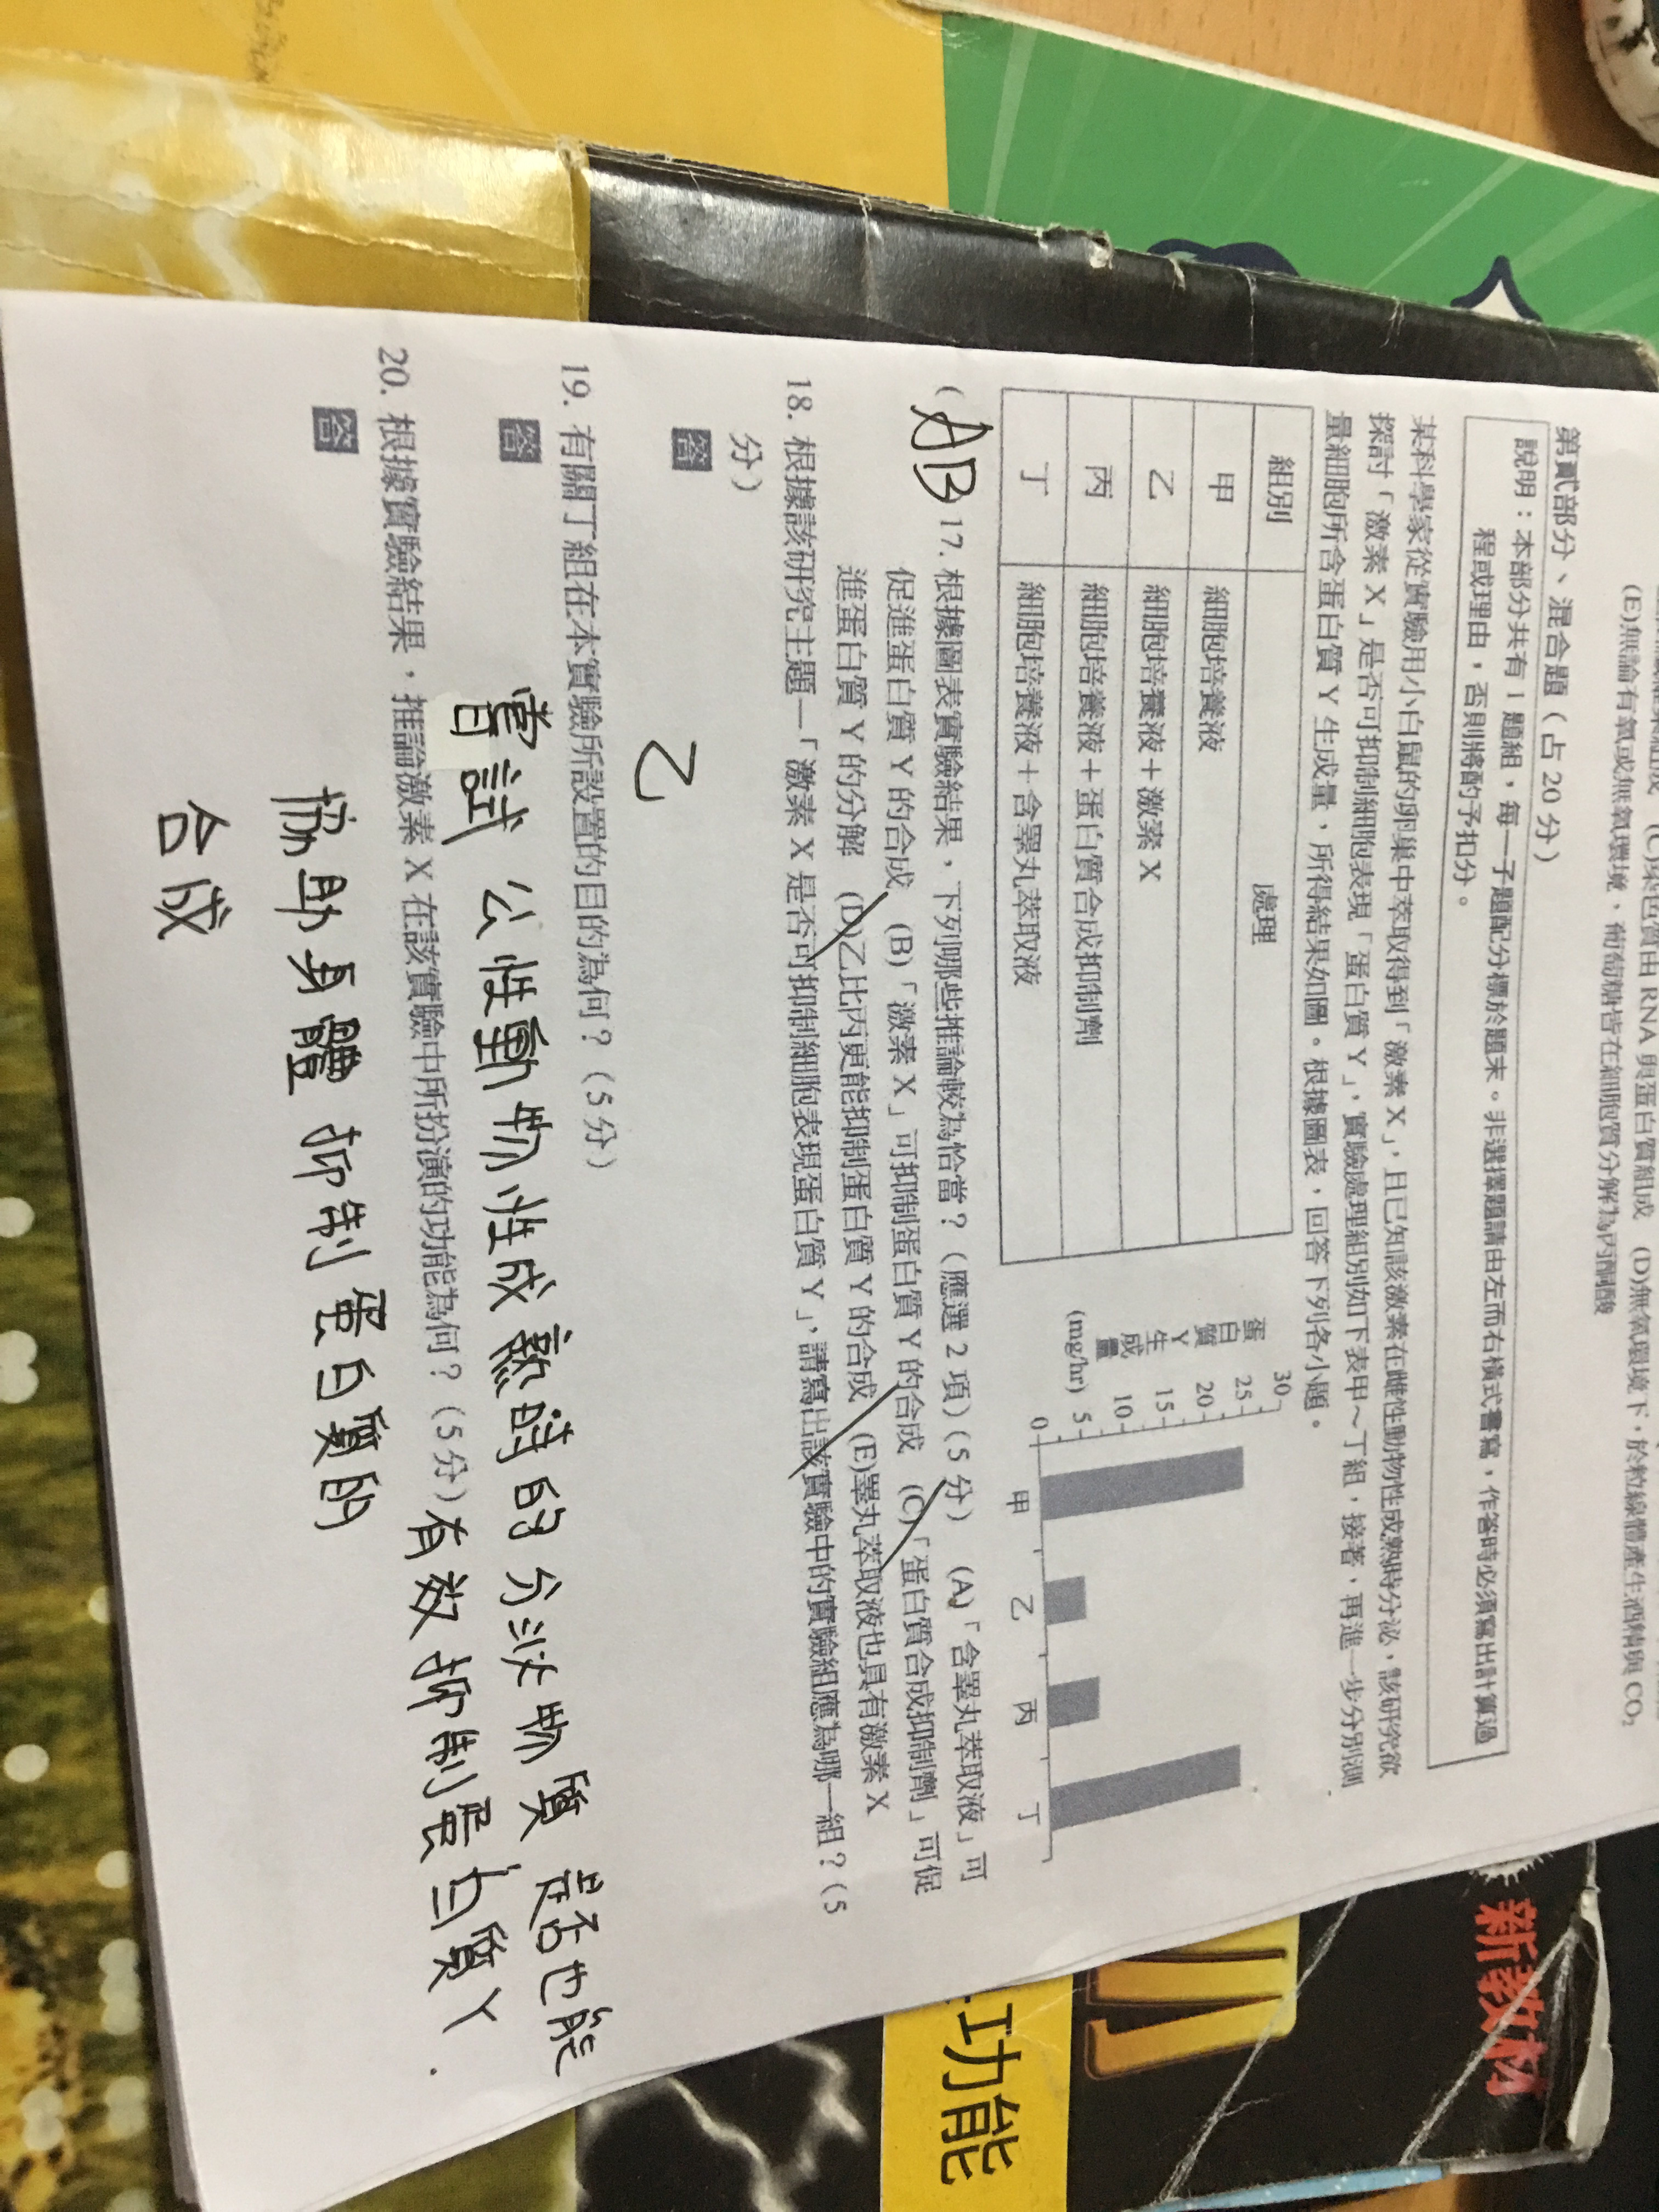 (E)無論有氧或無氧環境，葡萄糖皆在細胞質分解為丙酮酸
RNA 與蛋白質組成 (D)無氧環境下，於粒線體產生酒精與 CO₂
第貳部分、混合題（占 20 分）
說明：本部分共有 1 題組，每一子題配分標於題末。非選擇題請由左而右橫式書寫，作答時必須寫出計算過
程或理由，否則將酌予扣分。
某科學家從實驗用小白鼠的卵巢中萃取得到「激素 X」，且已知該激素在雌性動物性成熟時分泌，該研究欲
探討「激素 X」是否可抑制細胞表現「蛋白質 Y」，實驗處理組別如下表甲～丁組，接著，再進一步分別測
量細胞所含蛋白質 Y 生成量，所得結果如圖。根據圖表，回答下列各小題。
組別 處理
甲 細胞培養液
乙 細胞培養液＋激素 X
丙 細胞培養液＋蛋白質合成抑制劑
丁 細胞培養液＋含睪丸萃取液
蛋白質 Y 生成量
(mg/hr)
30
25
20
15
10
5
0
甲 乙 丙 丁
( AB ) 17. 根據圖表實驗結果，下列哪些推論較為恰當？（應選 2 項）（5 分） (A)「含睪丸萃取液」可
促進蛋白質 Y 的合成 (B)「激素 X」可抑制蛋白質 Y 的合成 (C)「蛋白質合成抑制劑」可促
進蛋白質 Y 的分解 (D)乙比丙更能抑制蛋白質 Y 的合成 (E)睪丸萃取液也具有激素 X
18. 根據該研究主題－「激素 X 是否可抑制細胞表現蛋白質 Y」，請寫出該實驗中的實驗組應為哪一組？（5
分）
答
乙
19. 有關丁組在本實驗所設置的目的為何？（5 分）
答
嘗試 公性動物性成熟時的分泌物質是否也能
有效抑制蛋白質 Y.
20. 根據實驗結果，推論激素 X 在該實驗中所扮演的功能為何？（5 分）
答
協助身體抑制蛋白質的
合成
新教材
功能